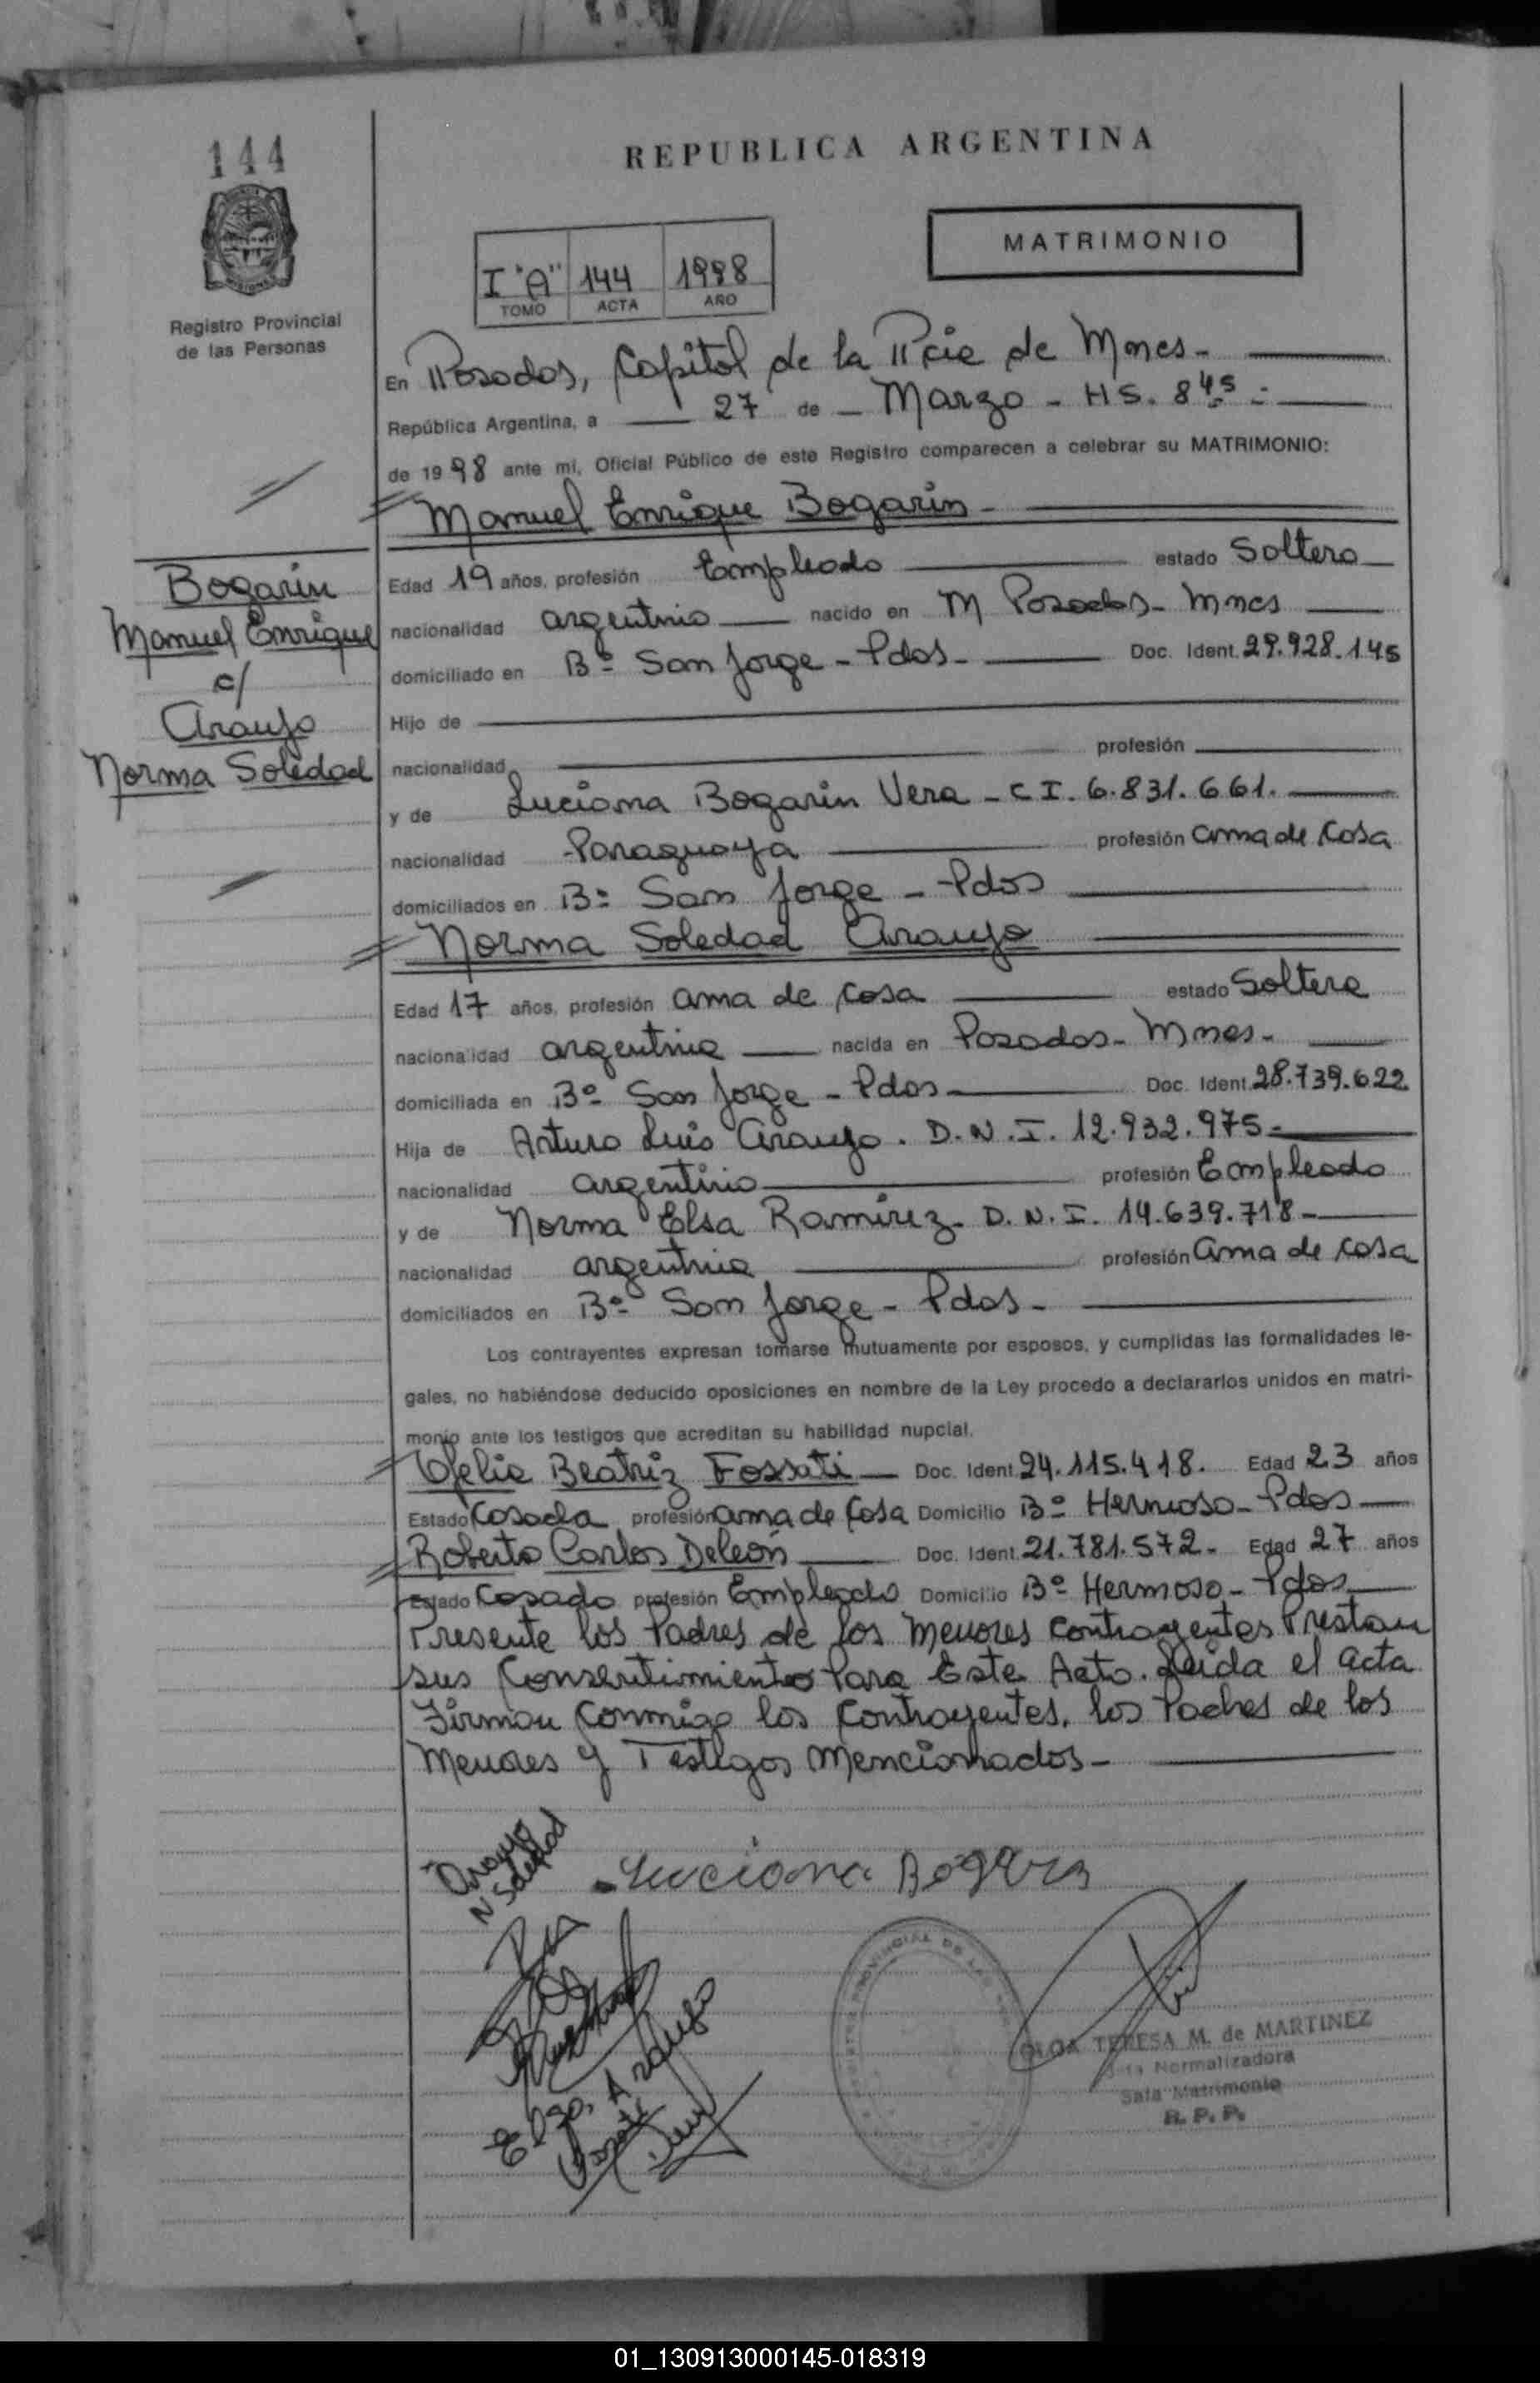 144
REPUBLICA ARGENTINA
MATRIMONIO
I "A" 144 1998
TOMO ACTA AÑO
Registro Provincial
de las Personas
En Posadas, Capital de la Pcia de Mnes. -
República Argentina, a 27 de - Marzo - HS. 8 45 -
de 1998 ante mi, Oficial Público de este Registro comparecen a celebrar su MATRIMONIO:
Manuel Enrique Bogarin -
Bogarin
Manuel Enrique
c/
Araujo
Norma Soledad
Edad 19 años, profesión Empleado estado Soltero
nacionalidad argentino nacido en Posadas - Mnes
domiciliado en Bº San Jorge - Pdas - Doc. Ident. 29.928.145
Hijo de
nacionalidad profesión
y de Luciana Bogarin Vera - C I. 6.831.661.
nacionalidad Paraguaya profesión ama de Casa
domiciliados en Bº San Jorge - Pdas
Norma Soledad Araujo
Edad 17 años, profesión ama de casa estado Soltera
nacionalidad argentina nacida en Posadas - Mnes -
domiciliada en Bº San Jorge - Pdas - Doc. Ident. 28.739.622
Hija de Arturo Luis Araujo . D.N.I. 12.932.975 -
nacionalidad argentino profesión Empleado
y de Norma Elsa Ramirez - D.N.I. 14.639.718 -
nacionalidad argentina profesión ama de casa
domiciliados en Bº San Jorge - Pdas -
Los contrayentes expresan tomarse mutuamente por esposos, y cumplidas las formalidades le-
gales, no habiéndose deducido oposiciones en nombre de la Ley procedo a declararlos unidos en matri-
monio ante los testigos que acreditan su habilidad nupcial.
Ofelia Beatriz Fossati - Doc. Ident. 24.115.418. Edad 23 años
Estado Casada profesión ama de Casa Domicilio Bº Hermoso - Pdas
Roberto Carlos Deleon Doc. Ident. 21.781.572 - Edad 27 años
Estado Casado profesión Empleado Domicilio Bº Hermoso - Pdas
Presente los Padres de los Menores Contrayentes Prestan
sus Consentimiento Para Este Acto. Leida el acta
Firman Conmigo los Contrayentes, los Padres de los
Menores y Testigos Mencionados -
Araujo
N Soledad
Luciana Bogarin
OLGA TERESA M. de MARTINEZ
Normalizadora
Sala Matrimonio
R. P. P.
01_130913000145-018319